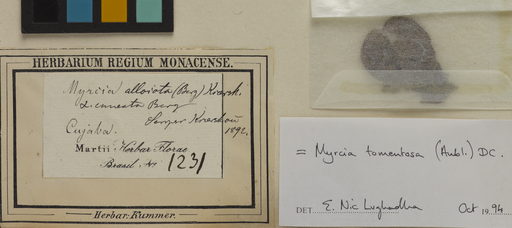 HERBARIUM REGIUM MONACENSE.
Myrcia alloiota (Berg) Kiærsk.
cuneata Berg
Cujaba.
1892.
Martii Herbar. Florae
Brasil. No 1231
Herbar. Kummer.
= Myrcia tomentosa (Aubl.) DC.
DET. E. Nic Lughadha Oct 1994